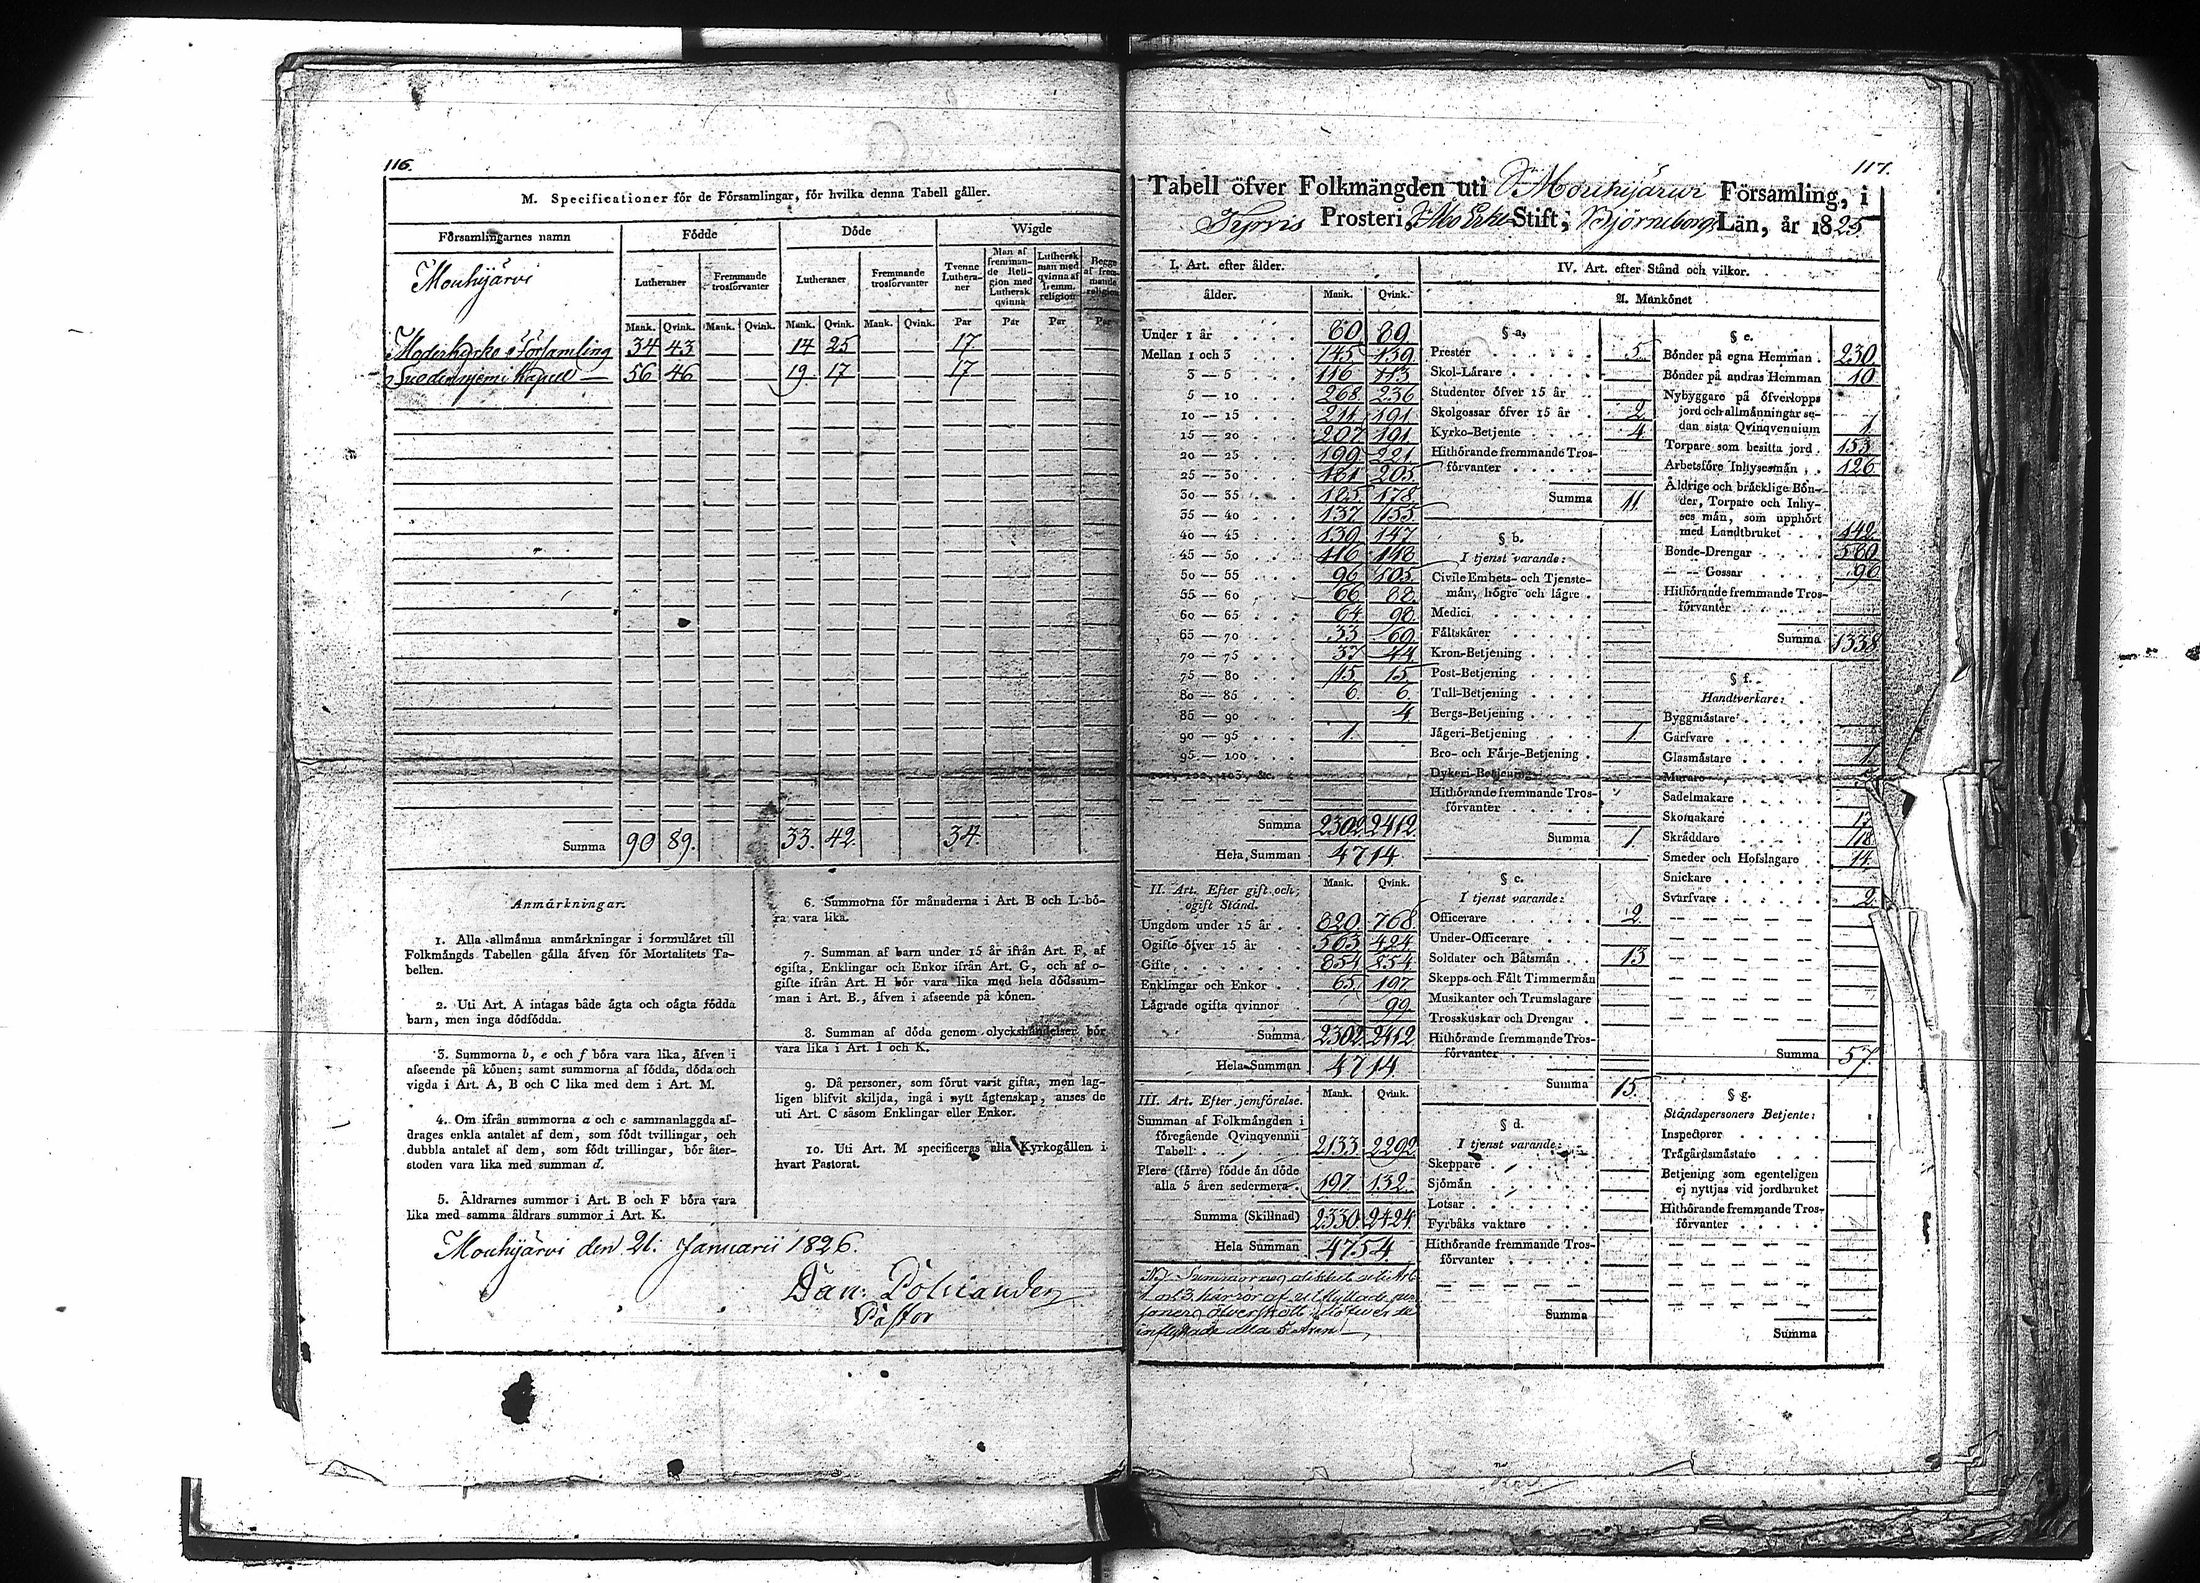 116.
M. Specificationer för de Församlingar, för hvilka denna Tabell gäller.
Församlingarnes namn
Födde
Döde
Wigde
Mouhijärvi
Lutheraner
Fremmande trosförvanter
Lutheraner
Fremmande trosförvanter
Tvenne Lutheraner
Man af fremmande Religion med Luthersk qvinna
Luthersk man med qvinna af fremm. religion
Begge af fremmande religion
Mank. Qvink. Mank. Qvink. Mank. Qvink. Mank. Qvink. Par Par Par Par
Moderkyrko Församling 34 43 14 25 17
Suodenniemi Kapell 56 46 19 17 17
Summa 90 89. 33. 42. 34.
Anmärkningar.
1. Alla allmänna anmärkningar i formuläret till
Folkmängds Tabellen gälla äfven för Mortalitets Ta-
bellen.
2. Uti Art. A intagas både ägta och oägta födda
barn, men inga dödfödda.
3. Summorna b, e och f böra vara lika, äfven i
afseende på könen; samt summorna af födda, döda och
vigda i Art. A, B och C lika med dem i Art. M.
4. Om ifrån summorna a och c sammanlaggda af-
drages enkla antalet af dem, som födt tvillingar, och
dubbla antalet af dem, som födt trillingar, bör åter-
stoden vara lika med summan d.
5. Åldrarnes summor i Art. B och F böra vara
lika med samma åldrars summor i Art. K.
6. Summorna för månaderna i Art. B och L bö-
ra vara lika.
7. Summan af barn under 15 år ifrån Art. F, af
ogifta, Enklingar och Enkor ifrån Art. G, och af o-
gifte ifrån Art. H bör vara lika med hela dödssum-
man i Art. B., äfven i afseende på könen.
8. Summan af döda genom olyckshändelser bör
vara lika i Art. I och K.
9. Då personer, som förut varit gifta, men lag-
ligen blifvit skiljda, ingå i nytt ägtenskap, anses de
uti Art. C såsom Enklingar eller Enkor.
10. Uti Art. M specificeras alla Kyrkogällen i
hvart Pastorat.
Mouhijärvi den 21: Januarii 1826.
Dan: Polviander
Pastor
117.
Tabell öfver Folkmängden uti Mouhijärvi Församling, i
Tyrvis Prosteri, Åbo Erke Stift, Björneborgs Län, år 1825.
I. Art. efter ålder.
ålder. Mank. Qvink.
Under 1 år 80 89
Mellan 1 och 3 145 139
3 — 5 116 113
5 — 10 268 236
10 — 15 211 191
15 — 20 207 191
20 — 25 199 221
25 — 30 181 205
30 — 35 185 178
35 — 40 137 155
40 — 45 139 147
45 — 50 116 148
50 — 55 96 105
55 — 60 66 88
60 — 65 64 98
65 — 70 33 60
70 — 75 37 44
75 — 80 15 15
80 — 85 6 6
85 — 90 4
90 — 95 1
95 — 100
Summa 2302 2412
Hela Summan 4714
II. Art. Efter gift och
ogift Stånd. Mank. Qvink.
Ungdom under 15 år 820 768
Ogifte öfver 15 år 563 424
Gifte 854 854
Enklingar och Enkor 65 197
Lägrade ogifta qvinnor 99
Summa 2302 2412
Hela Summan 4714
III. Art. Efter jemförelse. Mank. Qvink.
Summan af Folkmängden i
föregående Qvinqvennii
Tabell 2133 2292
Flere (färre) födde än döde
alla 5 åren sedermera 197 132
Summa (Skillnad) 2330 2424
Hela Summan 4754
inflyttade alla 5 Åren
IV. Art. efter Stånd och vilkor.
A. Mankönet
§ a,
Prester 5
Skol-Lärare
Studenter öfver 15 år
Skolgossar öfver 15 år 2
Kyrko-Betjente 4
Hithörande fremmande Tros-
förvanter
Summa 11
§ b.
I tjenst varande:
Civile Embets- och Tjenste-
män, högre och lägre
Medici
Fältskärer
Kron-Betjening
Post-Betjening
Tull-Betjening
Bergs-Betjening
Jägeri-Betjening 1
Bro- och Färje-Betjening
Dykeri-Betjening
Hithörande fremmande Tros-
förvanter
Summa 1
§ c.
I tjenst varande:
Officerare 2
Under-Officerare
Soldater och Båtsmän 13
Skepps och Fält Timmermän
Musikanter och Trumslagare
Trosskuskar och Drengar
Hithörande fremmande Tros-
förvanter
Summa 15
§ d.
I tjenst varande:
Skeppare
Sjömän
Lotsar
Fyrbåks vaktare
Hithörande fremmande Tros-
förvanter
Summa
§ e.
Bönder på egna Hemman 230
Bönder på andras Hemman 10
Nybyggare på öfverlopps
jord och allmänningar se-
dan sista Qvinqvennium 1
Torpare som besitta jord 153
Arbetsföre Inhysesmän 126
Åldrige och bräcklige Bön-
der, Torpare och Inhy-
ses män, som upphört
med Landtbruket 142
Bonde-Drengar 580
— — Gossar 96
Hithörande fremmande Tros-
förvanter
Summa 1338
§ f.
Handtverkare:
Byggmästare
Garfvare
Glasmästare 1
Murare
Sadelmakare
Skomakare
Skräddare 18
Smeder och Hofslagare 14
Snickare
Svarfvare 2
Summa 57.
§ g.
Ståndspersoners Betjente:
Inspectorer
Trägårdsmästare
Betjening som egenteligen
ej nyttjas vid jordbruket
Hithörande fremmande Tros-
förvanter
Summa